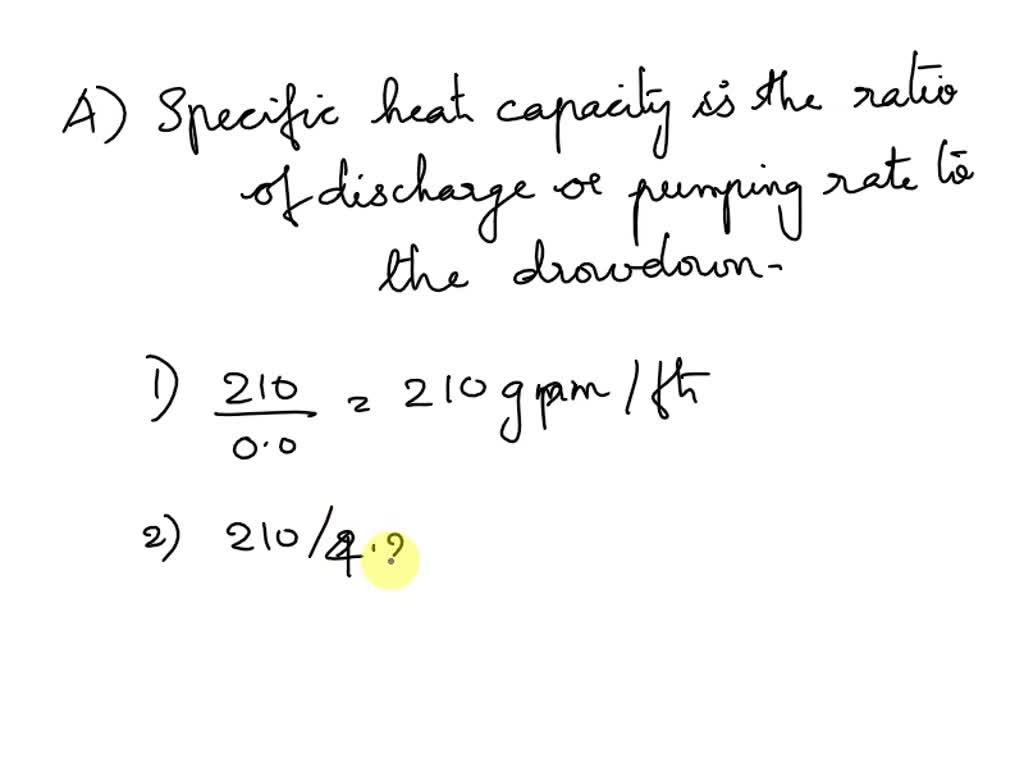 A) Specific heat capacity is the ratio
of discharge or pumping rate to
the drowdown-
1) 210 / 0.0 = 210 gpm / ft
2) 210 / 4.?